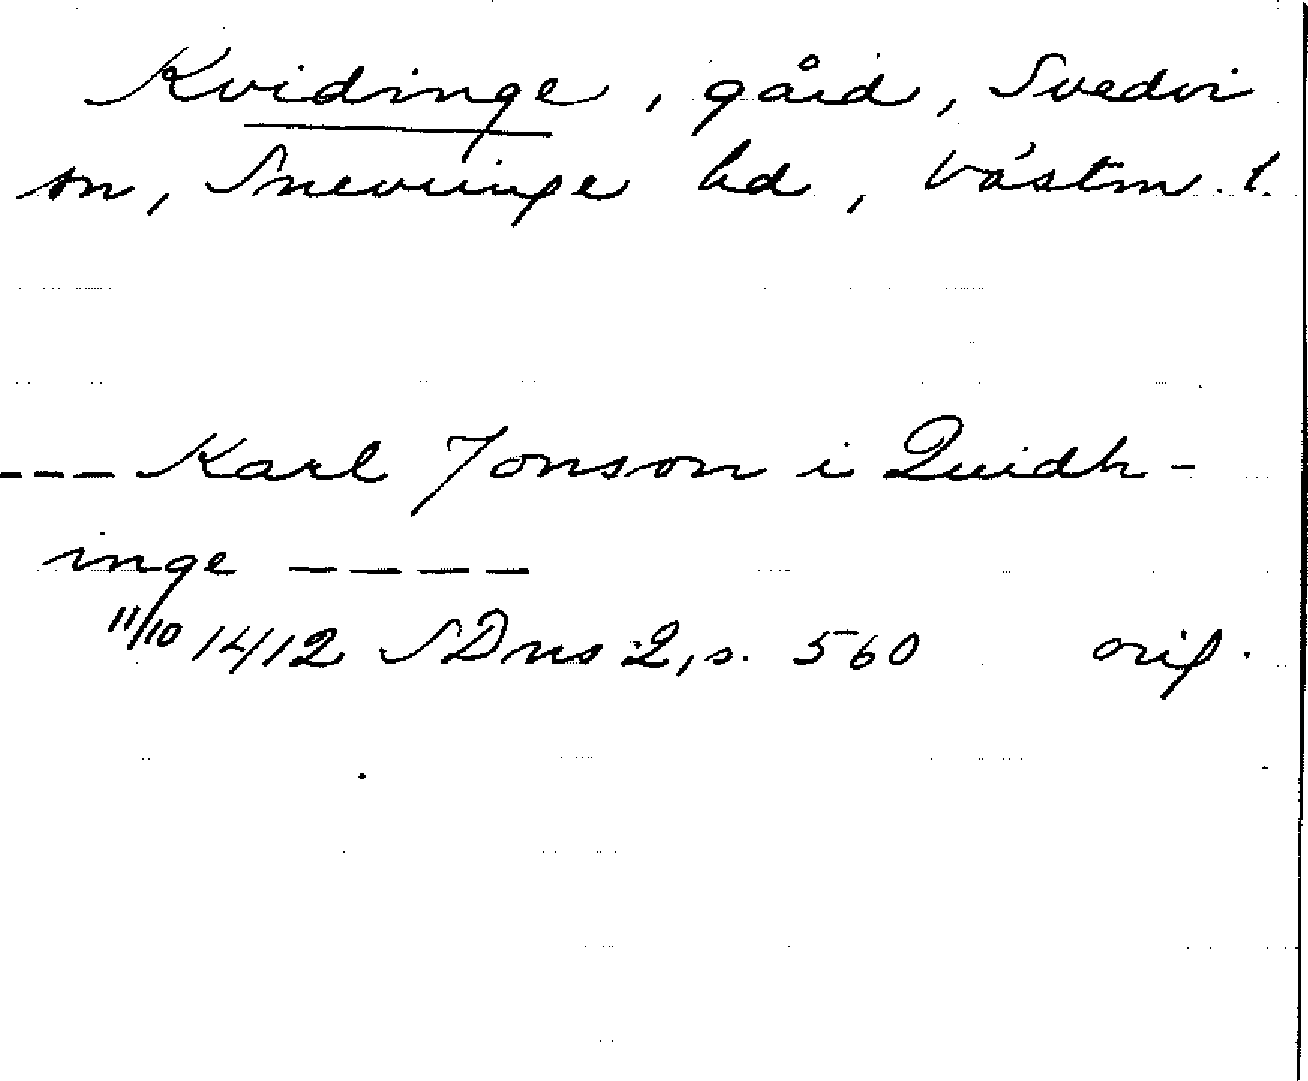 Kvidinge, gård, Svedvi
sn, Snevringe hd, Västm. l.
--- Karl Jonson i Quidh-
inge ----
11/10 1412 SDns 2, s. 560 orig.